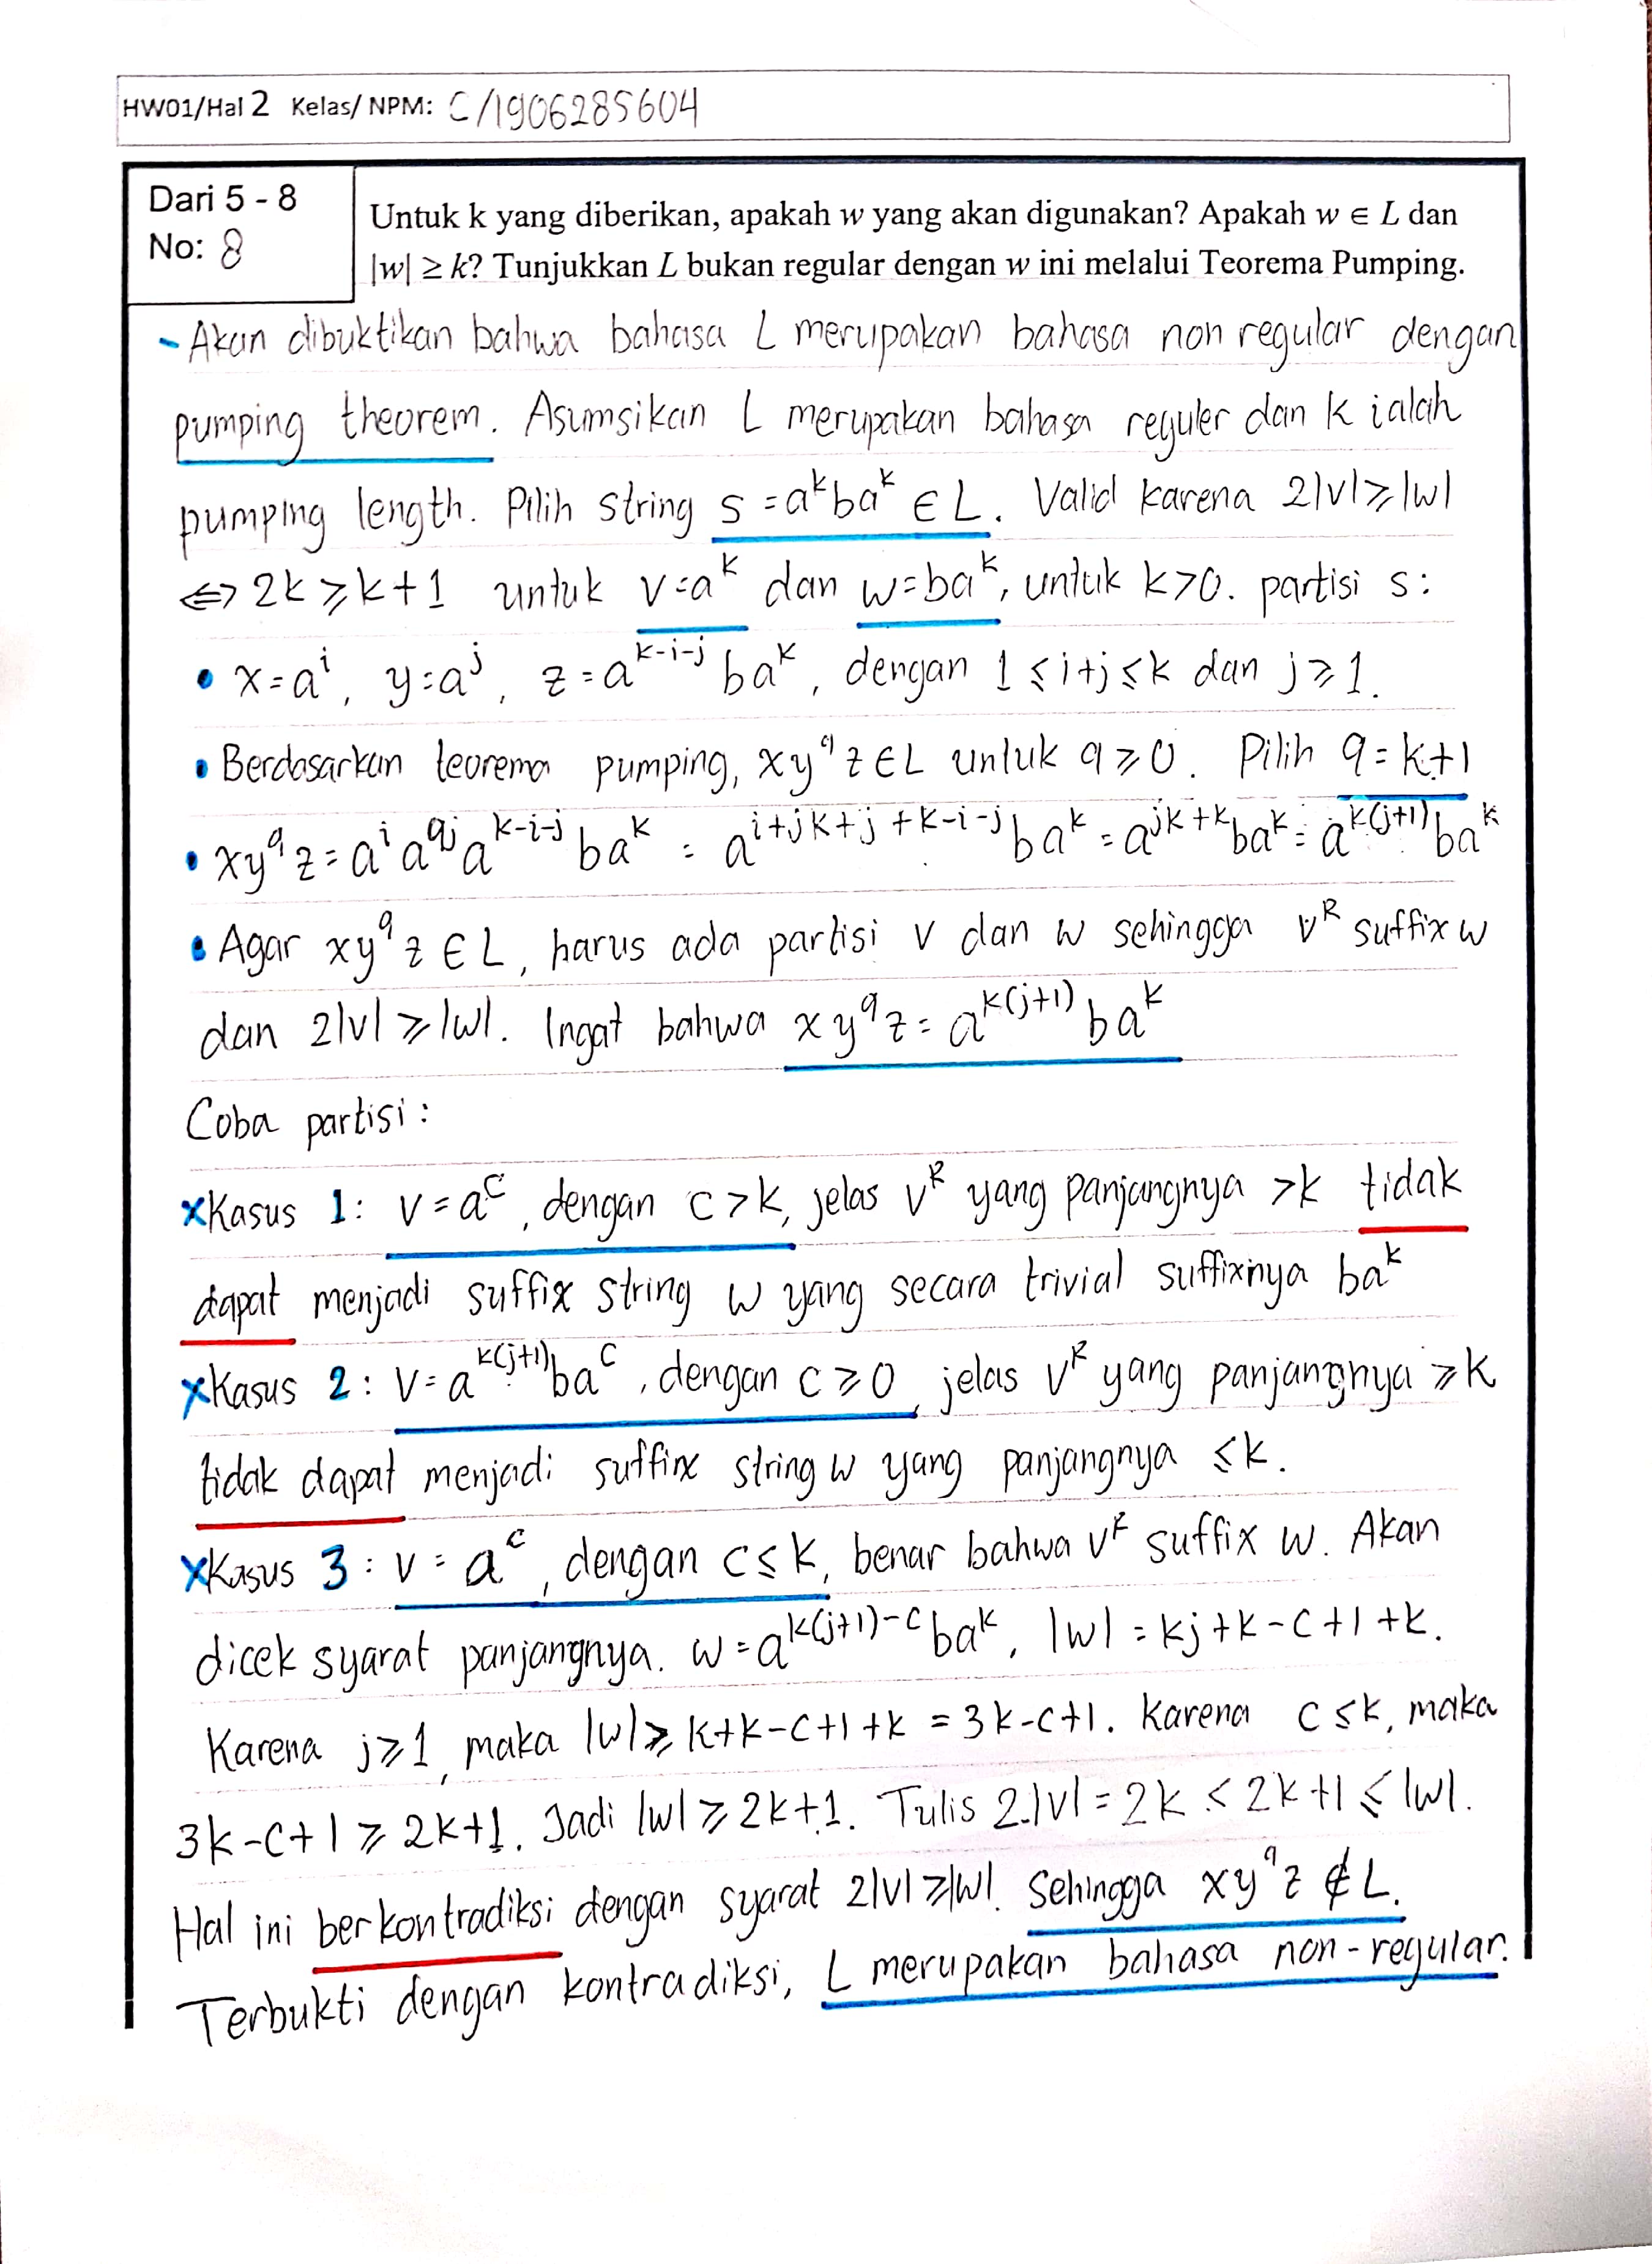 HW01/Hal 2 Kelas/ NPM: C/1906285604
Dari 5 - 8
No: 8
Untuk k yang diberikan, apakah w yang akan digunakan? Apakah w ∈ L dan
|w| ≥ k? Tunjukkan L bukan regular dengan w ini melalui Teorema Pumping.
- Akan dibuktikan bahwa bahasa L merupakan bahasa non regular dengan
pumping theorem. Asumsikan L merupakan bahasa reguler dan k ialah
pumping length. Pilih string s = a^k b a^k ∈ L. Valid karena 2|v| ≥ |w|
⇔ 2k ≥ k+1 untuk v = a^k dan w = ba^k, untuk k>0. partisi s:
• x = a^i, y = a^j, z = a^{k-i-j} b a^k, dengan 1 ≤ i+j ≤ k dan j ≥ 1.
• Berdasarkan teorema pumping, xy^q z ∈ L untuk q ≥ 0. Pilih q = k+1
• xy^q z = a^i a^{qj} a^{k-i-j} b a^k = a^{i+jk+j+k-i-j} b a^k = a^{jk+k} b a^k = a^{k(j+1)} b a^k
• Agar xy^q z ∈ L, harus ada partisi v dan w sehingga v^R suffix w
dan 2|v| ≥ |w|. Ingat bahwa xy^q z = a^{k(j+1)} b a^k
Coba partisi :
x Kasus 1: v = a^c, dengan c > k, jelas v^R yang panjangnya > k tidak
dapat menjadi suffix string w yang secara trivial suffixnya ba^k
x Kasus 2 : v = a^{k(j+1)} b a^c, dengan c ≥ 0, jelas v^R yang panjangnya ≥ k
tidak dapat menjadi suffix string w yang panjangnya ≤ k.
x Kasus 3 : v = a^c, dengan c ≤ k, benar bahwa v^R suffix w. Akan
dicek syarat panjangnya. w = a^{k(j+1)-c} b a^k, |w| = kj+k-c+1+k.
Karena j ≥ 1, maka |w| ≥ k+k-c+1+k = 3k-c+1. Karena c ≤ k, maka
3k-c+1 ≥ 2k+1. Jadi |w| ≥ 2k+1. Tulis 2.|v| = 2k < 2k+1 ≤ |w|.
Hal ini berkontradiksi dengan syarat 2|v| ≥ |w|. Sehingga xy^q z ∉ L.
Terbukti dengan kontradiksi, L merupakan bahasa non-regular.